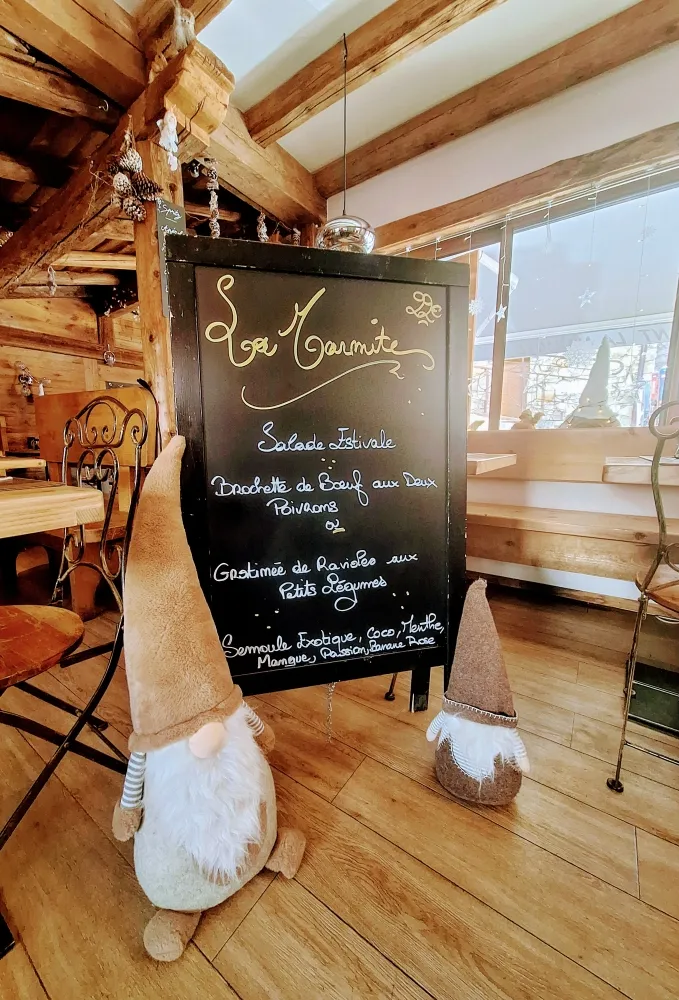 La Marmite
Salade Estivale
Brochette de Bœuf aux Deux
Poivrons
ou
Gratinée de Ravioles aux
Petits Légumes
Semoule Exotique, Coco, Menthe,
Mangue, Passion, Banane Rose